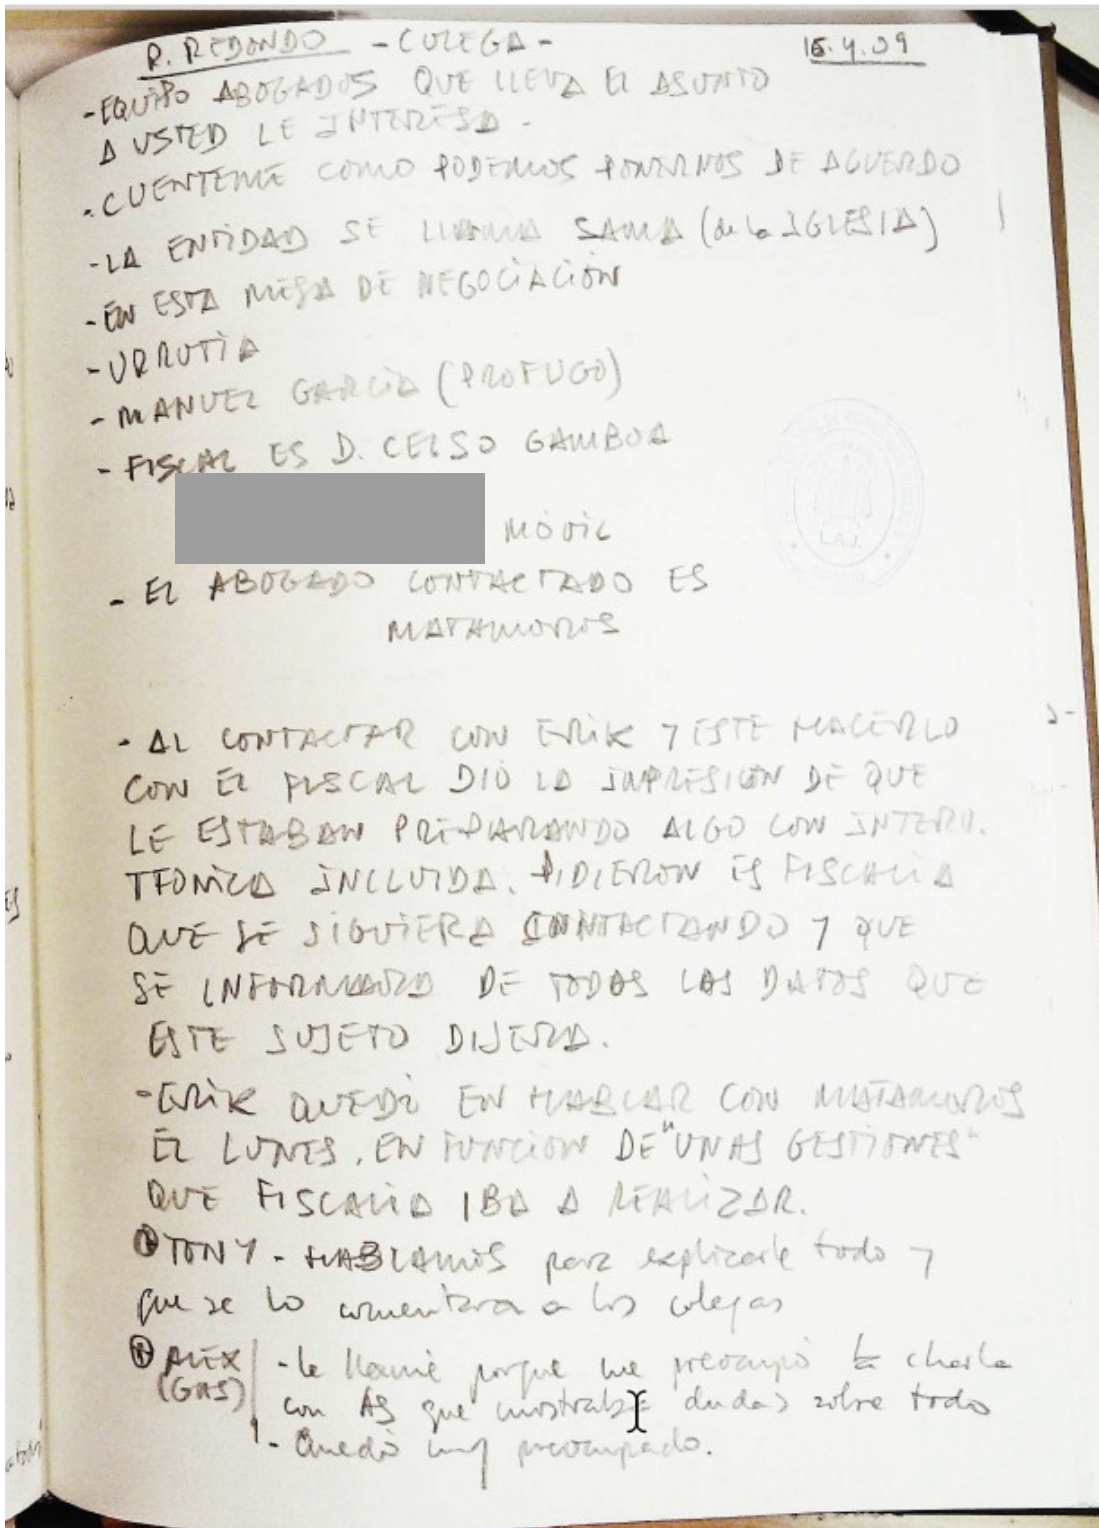 R. REDONDO - COLEGA - 15.4.09
- EQUIPO ABOGADOS QUE LLEVA EL ASUNTO
A USTED LE INTERESA.
- CUENTEME COMO PODEMOS PONERNOS DE ACUERDO
- LA ENTIDAD SE LLAMA SAMA (de la IGLESIA)
- EN ESTA MESA DE NEGOCIACIÓN
- URRUTIA
- MANUEL GARCIA (PROFUGO)
- FISCAL ES D. CELSO GAMBOA
MÓVIL
- EL ABOGADO CONTACTADO ES
MATAMOROS
L.A.J.
- AL CONTACTAR CON ERIK Y ESTE HACERLO
CON EL FISCAL DIO LA IMPRESIÓN DE QUE
LE ESTABAN PREPARANDO ALGO CON INTERV.
TFONICA INCLUIDA. PIDIERON ES FISCALIA
QUE SE SIGUIERA CONTACTANDO Y QUE
SE INFORMARA DE TODOS LOS DATOS QUE
ESTE SUJETO DIJERA.
- ERIK QUEDÓ EN HABLAR CON MATAMOROS
EL LUNES, EN FUNCION DE "UNAS GESTIONES"
QUE FISCALIA IBA A REALIZAR.
TONY - HABLAMOS para explicarle todo y
que se lo comentara a los colegas
ALEX - le llamé porque me preocupó la charla
(GAS) con AG que mostraba dudas sobre todo
- Quedó muy preocupado.